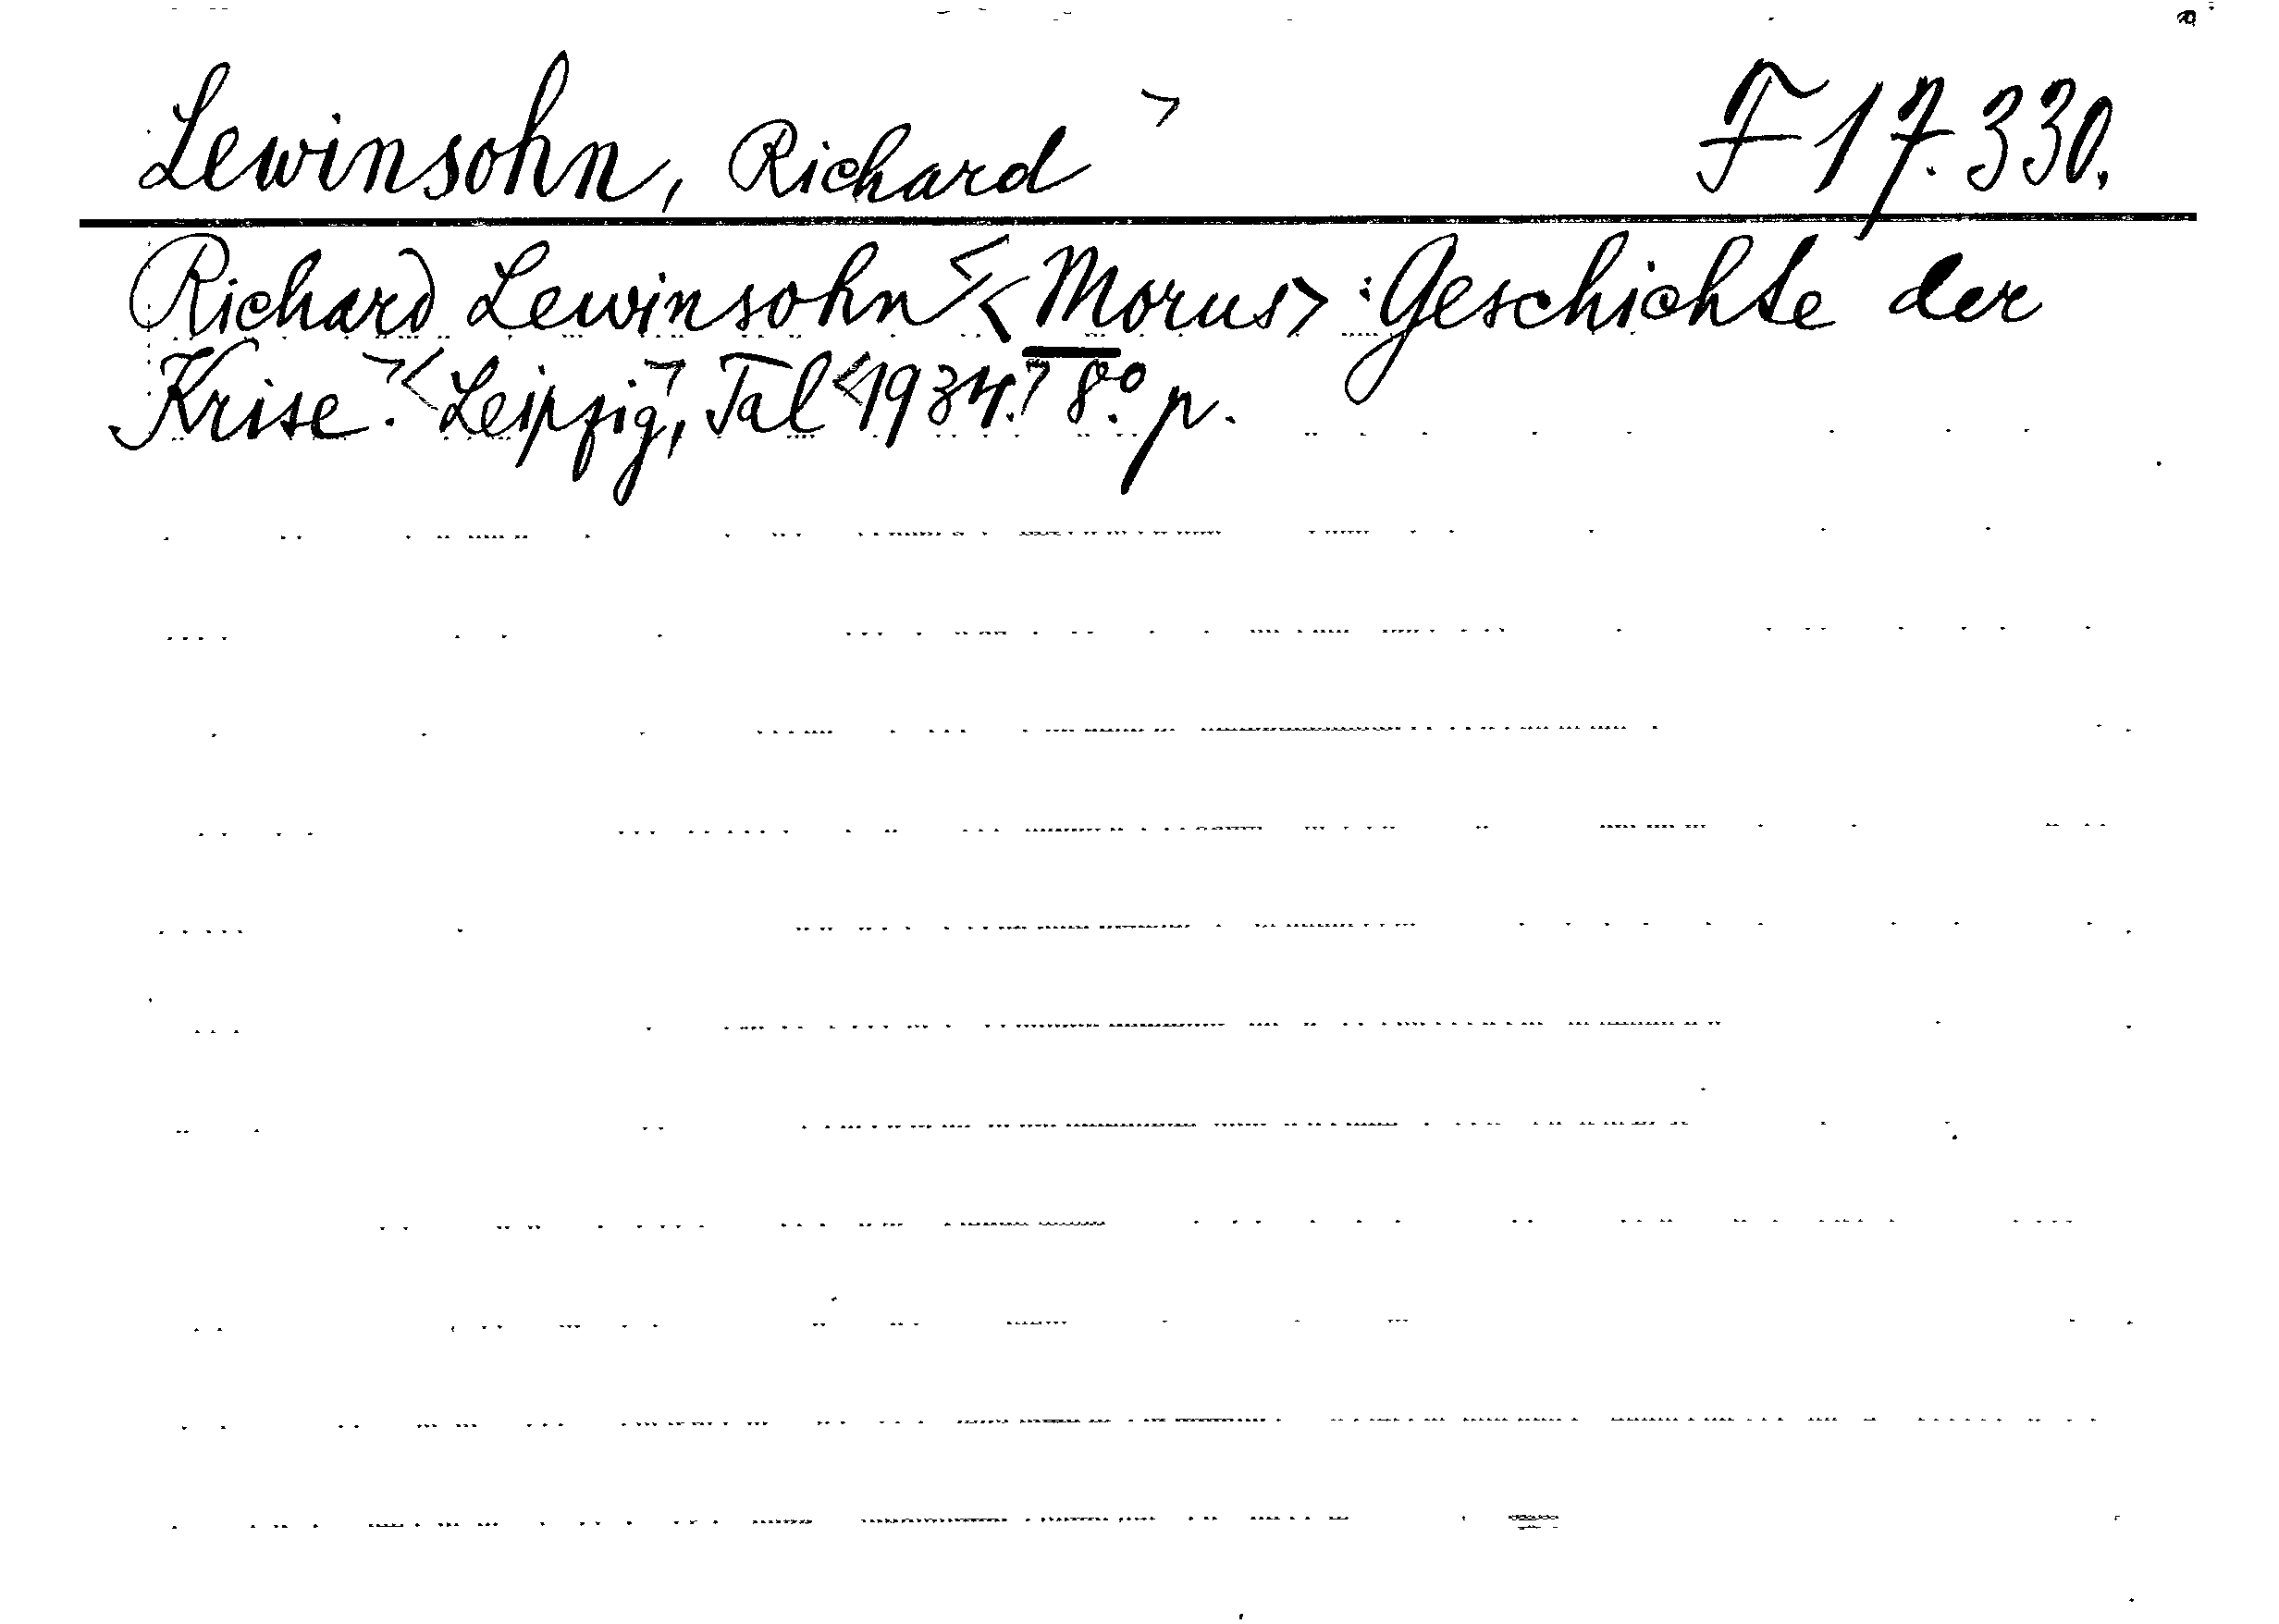 Lewinsohn, Richard > F 17.330.
Richard Lewinsohn < <Morus> : Geschichte der
Krise. > < Leipzig >, Tal < 1934. > 8.° p.